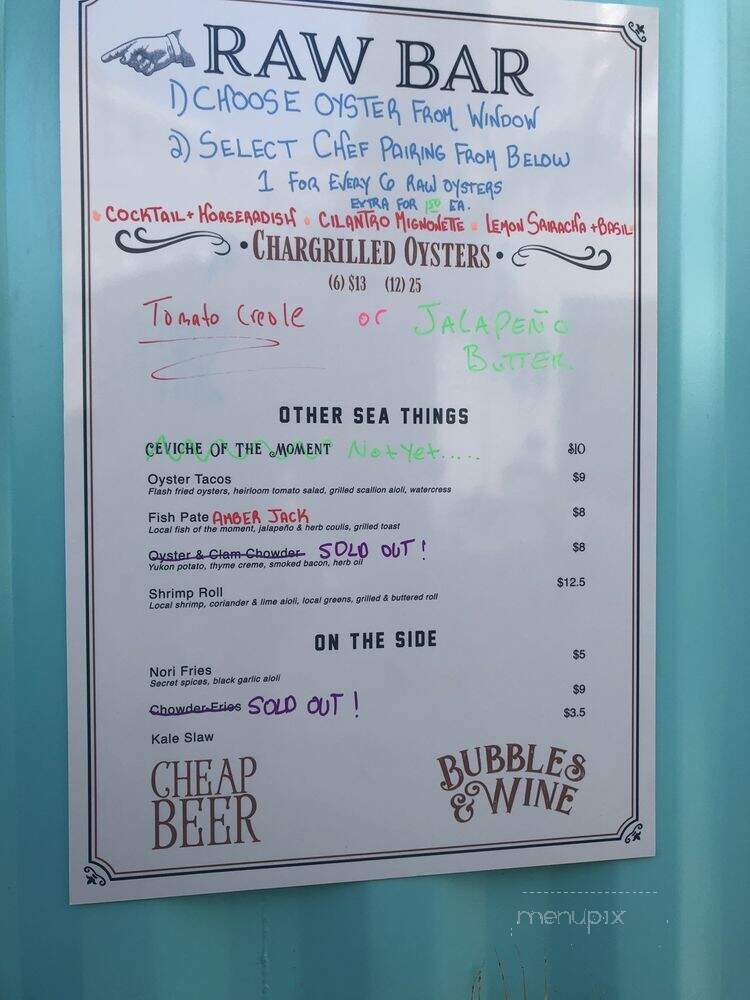 RAW BAR
1) CHOOSE OYSTER FROM WINDOW
2) SELECT CHEF PAIRING FROM BELOW
1 FOR EVERY 6 RAW OYSTERS
EXTRA FOR 1.50 EA.
• COCKTAIL + HORSERADISH • CILANTRO MIGNONETTE • LEMON SRIRACHA + BASIL
• CHARGRILLED OYSTERS •
(6) $13 (12) 25
Tomato Creole or JALAPEÑO
BUTTER.
OTHER SEA THINGS
CEVICHE OF THE MOMENT Not Yet..... $10
Oyster Tacos $9
Flash fried oysters, heirloom tomato salad, grilled scallion aioli, watercress
Fish Pate AMBER JACK $8
Local fish of the moment, jalapeño & herb coulis, grilled toast
Oyster & Clam Chowder SOLD OUT! $8
Yukon potato, thyme creme, smoked bacon, herb oil
Shrimp Roll $12.5
Local shrimp, coriander & lime aioli, local greens, grilled & buttered roll
ON THE SIDE
Nori Fries $5
Secret spices, black garlic aioli
Chowder Fries SOLD OUT! $9
Kale Slaw $3.5
CHEAP
BEER
BUBBLES
& WINE
menupix